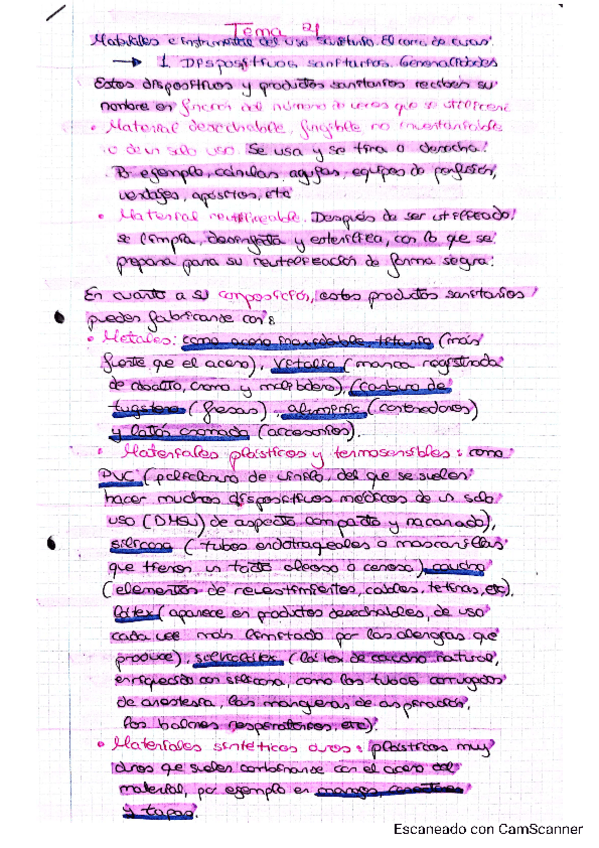 Tema 21
Materiales e instrumental de uso sanitario. El carro de curas.
→ 1. Dispositivos sanitarios. Generalidades
Estos dispositivos y productos sanitarios reciben su
nombre en función del número de veces que se utilicen:
• Material desechable, fungible no inventariable
o de un solo uso. Se usa y se tira o desecha.
Por ejemplo, cánulas, agujas, equipos de perfusión,
vendajes, apósitos, etc
• Material reutilizable. Después de ser utilizado
se limpia, desinfecta y esteriliza, con lo que se
prepara para su reutilización de forma segura.
En cuanto a su composición, estos productos sanitarios
pueden fabricarse con:
• Metales: como acero inoxidable titanio (más
fuerte que el acero), Vitalio (marca registrada
de cobalto, cromo y molibdeno), carburo de
tugsteno (fresas), aluminio (contenedores)
y latón cromado (accesorios).
• Materiales plásticos y termosensibles: como
PVC (policloruro de vinilo, del que se suelen
hacer muchos dispositivos médicos de un solo
uso (DMSU) de aspecto compacto y nacarado),
silicona (tubos endotraqueales o mascarillas
que tienen un tacto oleoso o ceroso), caucho
(elementos de revestimientos, cables, tetinas, etc).
látex (aparece en productos desechables, de uso
cada vez más limitado por las alergias que
produce), silicolátex (látex de caucho natural,
enriquecido con silicona, como los tubos corrugados
de anestesia, las mangueras de aspiración,
los balones respiratorios, etc).
• Materiales sintéticos duros: plásticos muy
duros que suelen combinarse con el acero del
material, por ejemplo en mangos,
y tapas.
Escaneado con CamScanner